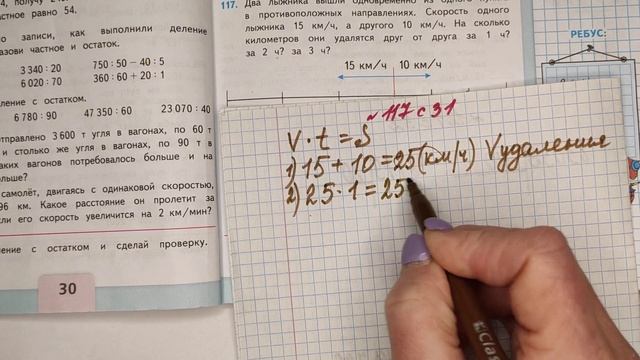 4, получ
частное равно 54.
записи, как выполнили деление
частное и остаток.
3 340 : 20 750 : 50 − 40 : 5
6 020 : 70 360 : 60 + 20 : 1
с остатком.
6 780 : 90 47 350 : 60 23 070 : 40
3 600 т угля в вагонах, по 60 т
и столько же угля в вагонах, по 90 т в
таких вагонов потребовалось больше и на
больше?
самолёт, двигаясь с одинаковой скоростью,
96 км. Какое расстояние он пролетит за
если его скорость увеличится на 2 км/мин?
с остатком и сделай проверку.
30
117. Два лыжника вышли одновременно из одного
в противоположных направлениях. Скорость одного
лыжника 15 км/ч, а другого 10 км/ч. На сколько
километров они удалятся друг от друга за 1 ч?
за 2 ч? за 3 ч?
15 км/ч 10 км/ч
РЕБУС:
№ 117 с 31
V · t = S
1) 15 + 10 = 25 (км/ч) V удаления
2) 25 · 1 = 25